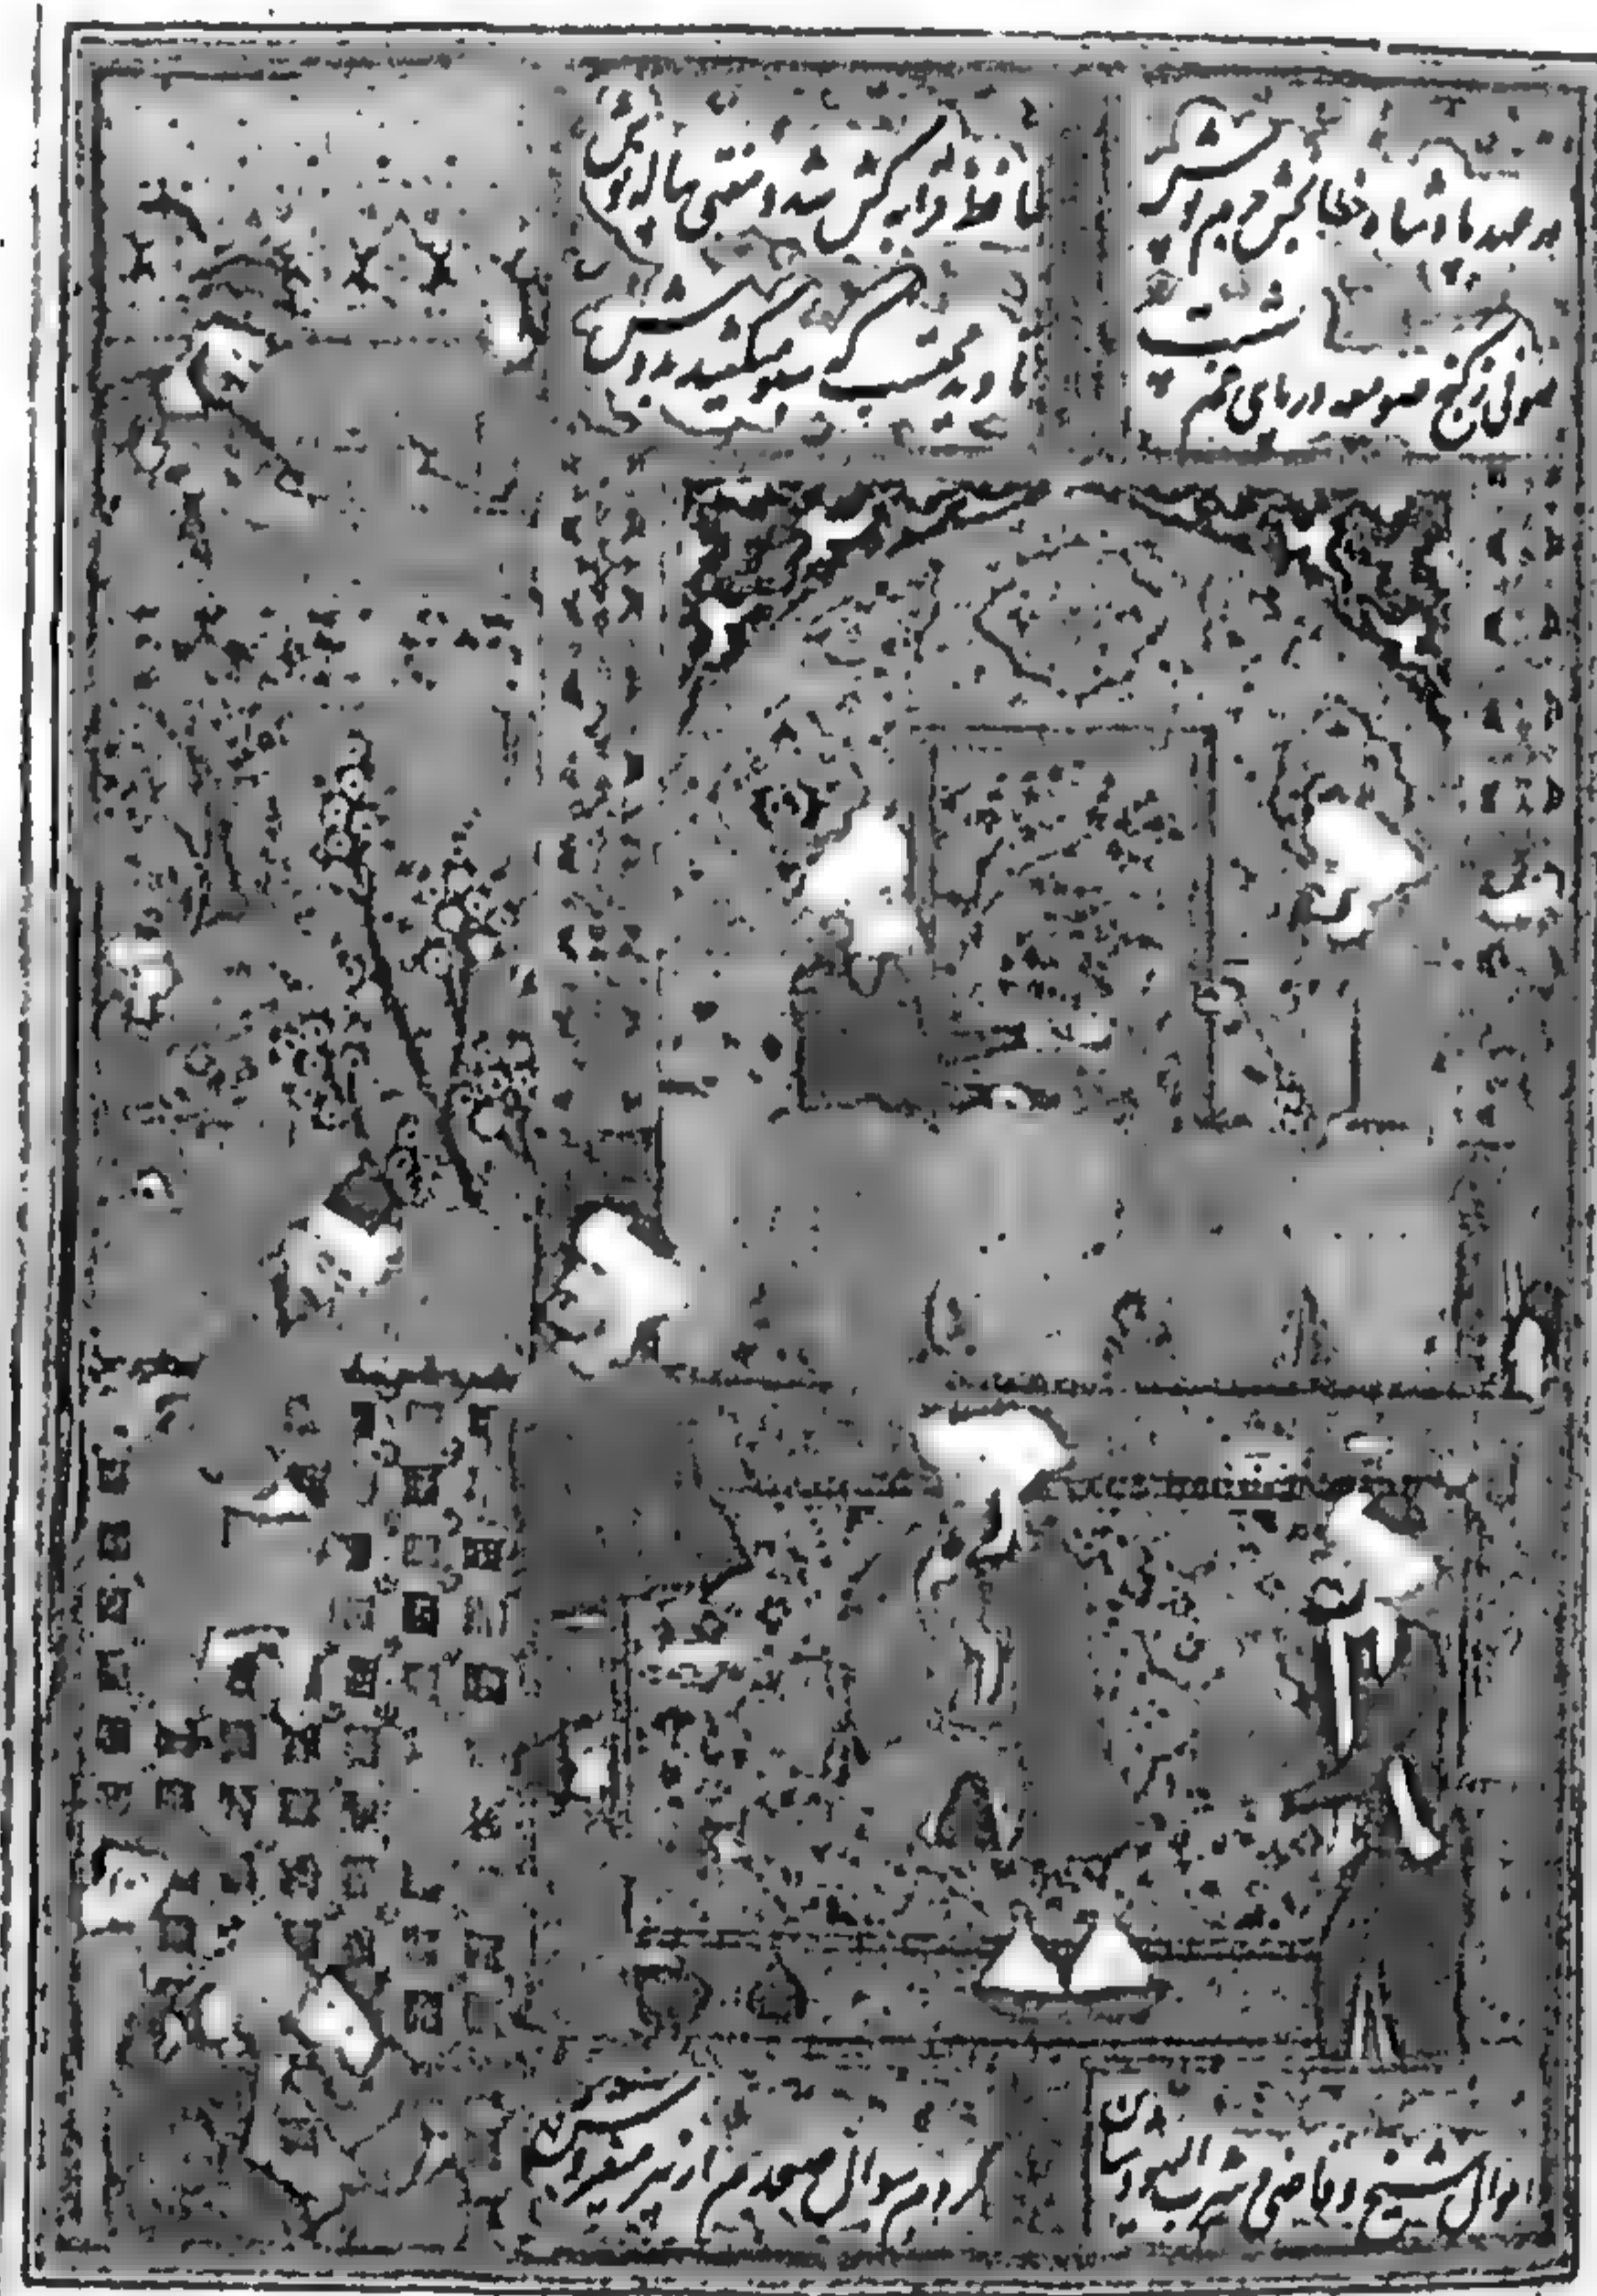 در عهد پادشاه خطابخش جرم پوش
حافظ قرابه کش شد و مفتی پیاله نوش
صوفی ز کنج صومعه در پای خم نشست
تا دید محتسب که سبو میکشد بدوش
احوال شیخ و قاضی و شرب الیهودشان
کردم سوال صبحدم از پیر میفروش